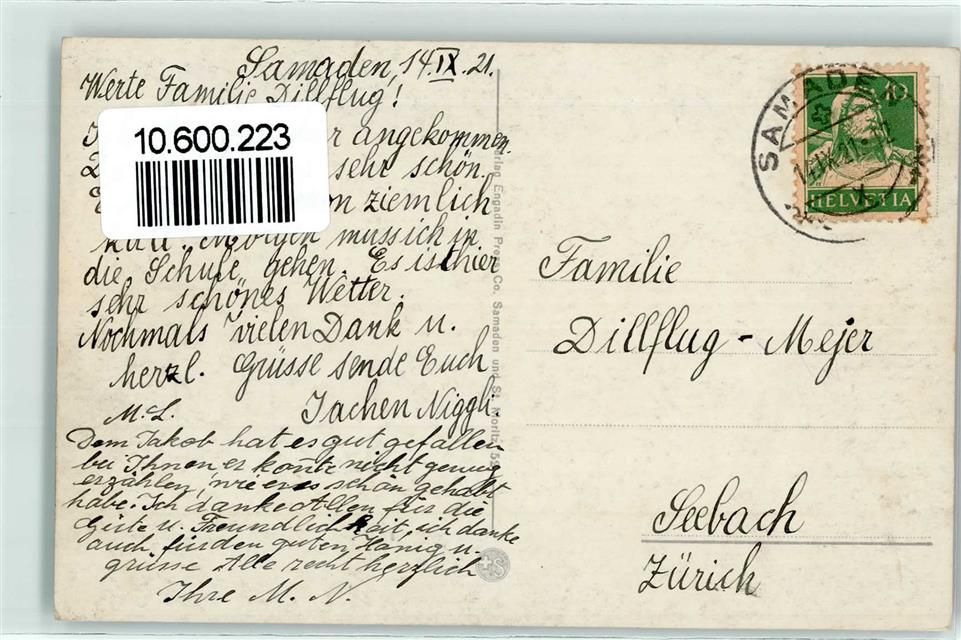 Samaden, 14.IX.21.
Werte Familie Dillflug!
angekommen.
sehr schön
ziemlich
kalt. Morgen muss ich in
die Schule gehen. Es ist hier
sehr schönes Wetter.
Nochmals vielen Dank u.
herzl. Grüsse sende Euch
Jachen Niggli.
M. L.
Dem Jakob hat es gut gefallen
bei Ihnen er konte nicht genug
erzählen, wie er es schön gehabt
habe. Ich danke Allen für die
Güte u. Freundlichkeit, ich danke
auch für den guten Honig u.
grüsse Alle recht herzlich
Ihre M. N.
10.600.223
Verlag Engadin Press Co. Samaden und St. Moritz
SAMADEN
10
HELVETIA
Familie
Dillflug - Mejer
Seebach
Zürich